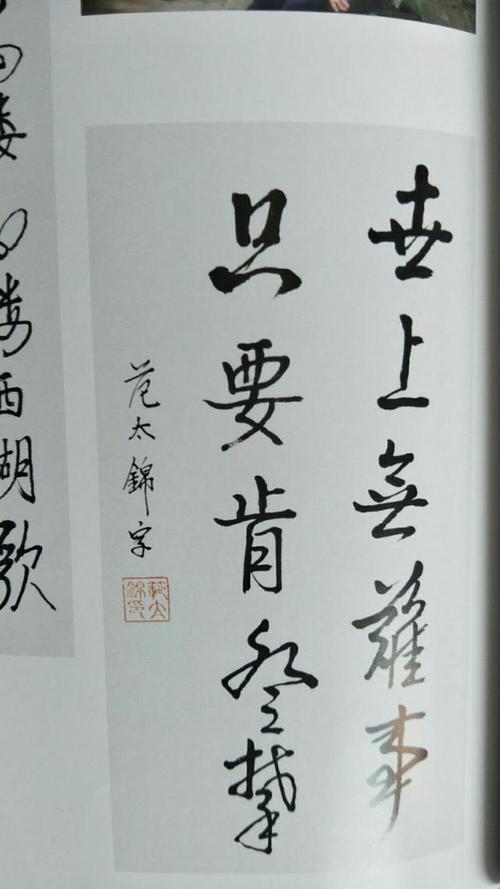 世上無難事
只要肯登攀
范太錦字
西湖歌